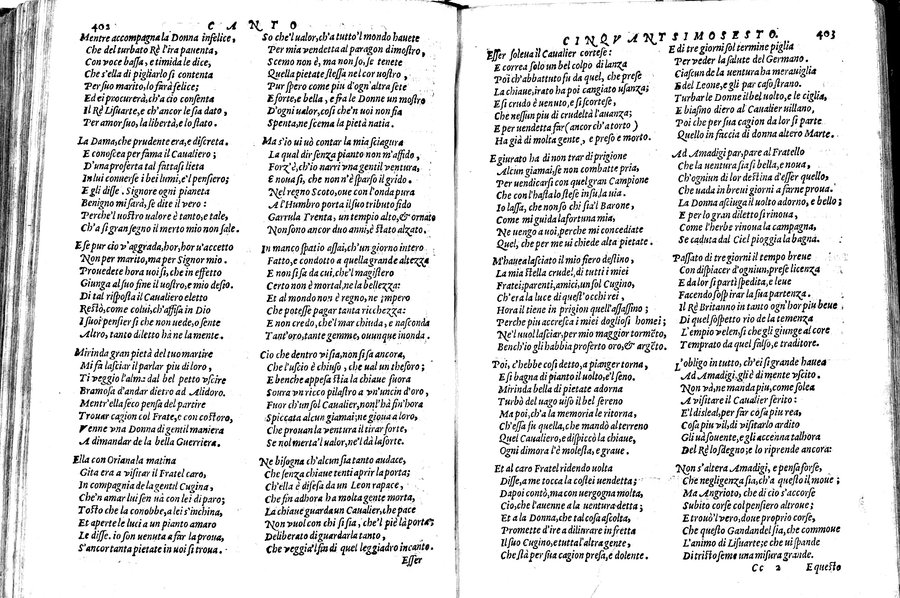 402 CANTO
Mentre accompagna la Donna infelice,
Che del turbato Rè l'ira pauenta,
Con voce bassa, e timida le dice,
Che s'ella di pigliarlo si contenta
Per suo marito, lo farà felice;
Ed ei procurerà, ch'a ciò consenta
Il Rè Lisuarte, e ch'ancor le sia dato,
Per amor suo, la libertà, e lo stato.
La Dama, che prudente era, e discreta.
E conoscea per fama il Caualiero;
D'una proferta tal fattasi lieta
In lui conuerse i bei lumi, e'l pensiero;
E gli disse. Signore ogni pianeta
Benigno mi sarà, se dite il vero:
Perche'l uostro ualore è tanto, e tale,
Ch'a sì gran segno il merto mio non sale.
E se pur ciò v'aggrada, hor, hor u'accetto
Non per marito, ma per Signor mio.
Prouedete hora uoi si, che in effetto
Giunga al suo fine il uostro, e mio desio.
Di tal risposta il Caualiero eletto
Restò, come colui, ch'affisa in Dio
I suoi pensieri si che non uede, o sente
Altro, tanto diletto hà ne la mente.
Mirinda gran pietà del tuo martire
Mi fa lasciar il parlar piu di loro,
Ti veggio l'alma dal bel petto vscire
Bramosa d'andar dietro ad Alidoro.
Mentr'ella seco pensa del partire
Trouar cagion col Frate, e con costoro,
Venne vna Donna di gentil maniera
A dimandar de la bella Guerriera.
Ella con Oriana la matina
Gita era a visitar il Fratel caro,
In compagnia de la gentil Cugina,
Che'n amar lui sen uà con lei di paro;
Tosto che la conobbe, a lei s'inchina,
Et aperte le luci a un pianto amaro
Le disse. io son uenuta a far la proua,
S'ancor tanta pietate in uoi si troua.
So che'l ualor, ch'a tutto'l mondo hauete
Per mia vendetta al paragon dimostro,
Scemo non è, ma non so, se tenete
Quella pietate stessa nel cor uostro,
Pur spero come piu d'ogn'altra sete
E forte, e bella, e fra le Donne un mostro
D'ogni ualor, così che'n uoi non fia
Spenta, ne scema la pietà natia.
Ma s'io ui uò contar la mia sciagura
La qual dir senza pianto non m'affido,
Forz'è, ch'io narri vna gentil ventura,
E noua sì, che non n'è sparso il grido.
Nel regno Scoto, oue con l'onda pura
A l'Humbro porta il suo tributo fido
Garrula Trenta, un tempio alto, & ornato
Non sono ancor due anni, è stato alzato.
In manco spatio assai, ch'un giorno intero
Fatto, e condotto a quella grande altezza
E non si sa da cui, che'l magistero
Certo non è mortal, ne la bellezza:
Et al mondo non è regno, ne impero
Che potesse pagar tanta ricchezza:
E non credo, che'l mar chiuda, e nasconda
Tant'oro, tante gemme, ouunque inonda.
Cio che dentro vi sia, non si sa ancora,
Che l'uscio è chiuso, che ual un thesoro;
E benche appesa stia la chiaue fuora
Soura vn ricco pilastro a vn'uncin d'oro,
Fuor ch'un sol Caualier, non l'hà fin'hora
Spiccata alcun giamai; ne gioua a loro,
Che prouan la ventura il tirar forte,
Se nol merta'l ualor, ne'l dà la sorte.
Ne bisogna ch'alcun sia tanto audace,
Che senza chiaue tenti aprir la porta;
Ch'ella è difesa da un Leon rapace,
Che fin adhora ha molta gente morta,
La chiaue guarda un Caualier, che pace
Non vuol con chi si sia, che'l piè là porta:
Deliberato di guardarla tanto,
Che veggia'l fin di quel leggiadro incanto.
Esser
CINQVANTSIMOSESTO. 403
Esser soleua il Caualier cortese:
E correa solo un bel colpo di lanza
Poi ch'abbattuto fu da quel, che prese
La chiaue, irato ha poi cangiato usanza;
E sì crudo è uenuto, e sì scortese,
Che nessun piu di crudeltà l'auanza;
E per uendetta far (ancor ch'a torto)
Ha già di molta gente, e preso e morto.
E giurato ha di non trar di prigione
Alcun giamai, se non combatte pria,
Per uendicarsi con quel gran Campione
Che con l'hasta lo stese in su la uia.
Io lassa, che non so chi sia'l Barone,
Come mi guida la fortuna mia,
Ne uengo a uoi, perche mi concediate
Quel, che per me ui chiede alta pietate.
M'hauea lasciato il mio fiero destino,
La mia stella crudel, di tutti i miei
Frati; parenti, amici, un sol Cugino,
Ch'era la luce di quest'occhi rei,
Hora il tiene in prigion quell'assassino;
Perche piu accresca i miei dogliosi homei;
Ne'l uuol lasciar, per mio maggior tormẽto,
Bench'io gli habbia proferto oro, & argẽto.
Poi, c'hebbe così detto, a pianger torna,
E si bagna di pianto il uolto, e'l seno.
Mirinda bella di pietate adorna
Turbò del uago uiso il bel sereno
Ma poi, ch'a la memoria le ritorna,
Ch'essa fu quella, che mandò al terreno
Quel Caualiero, e dispiccò la chiaue,
Ogni dimora l'è molesta, e graue.
Et al caro Fratel ridendo uolta
Disse, a me tocca la costei uendetta;
Dapoi contò, ma con uergogna molta,
Cio, che l'auenne a la uentura detta;
Et a la Donna, che tal cosa ascolta,
Promette d'ire a diliurare in fretta
Il suo Cugino, e tutta l'altra gente,
Che stà per sua cagion presa, e dolente.
E di tre giorni sol termine piglia
Per veder la salute del Germano.
Ciascun de la uentura hà merauiglia
E del Leone, e gli par caso strano.
Turbar le Donne il bel uolto, e le ciglia,
E biasmo diero al Caualier uillano,
Poi che per sua cagion da lor si parte
Quello in faccia di donna altero Marte.
Ad Amadigi par, pare al Fratello
Che la uentura sia sì bella, e noua,
Ch'ogniun di lor destina d'esser quello,
Che uada in breui giorni a farne proua.
La Donna asciuga il uolto adorno, e bello;
E per lo gran diletto si rinoua,
Come l'herbe rinoua la campagna,
Se caduta dal Ciel pioggia la bagna.
Passato di tre giorni il tempo breue
Con dispiacer d'ogniun, prese licenza
E da lor si partì spedita, e leue
Facendo sospirar la sua partenza.
Il Rè Britanno in tanto ogn'hor piu beue
Di quel sospetto rio de la temenza
L'empio velen, sì che gli giunge al core
Temprato da quel falso, e traditore.
L'obligo in tutto, ch'ei sì grande hauea
Ad Amadigi, gli è di mente vscito.
Non và, ne manda piu, come solea
A visitare il Caualier ferito:
E'l disleal, per far cosa piu rea,
Cosa piu vil, di visitarlo ardito
Gli uà souente, e gli accenna talhora
Del Rè lo sdegno; e lo riprende ancora:
Non s'altera Amadigi, e pensa forse,
Che negligenza sia, ch'a questo il moue;
Ma Angrioto, che di ciò s'accorse
Subito corse col pensiero altroue;
E trouò'l vero, doue proprio corse,
Che questo Gandandel sia, che commoue
L'animo di Lisuarte; e che ui spande
Di tristo seme una misura grande.
Cc 2 E questo